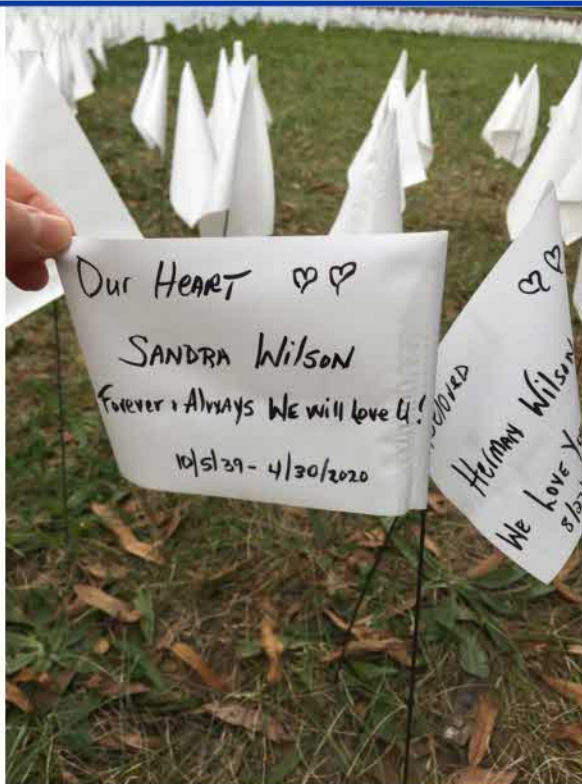 Our HEART ♡♡
SANDRA Wilson
Forever & Always WE will Love U!
10/5/39 - 4/30/2020
Herman Wilson
We Love